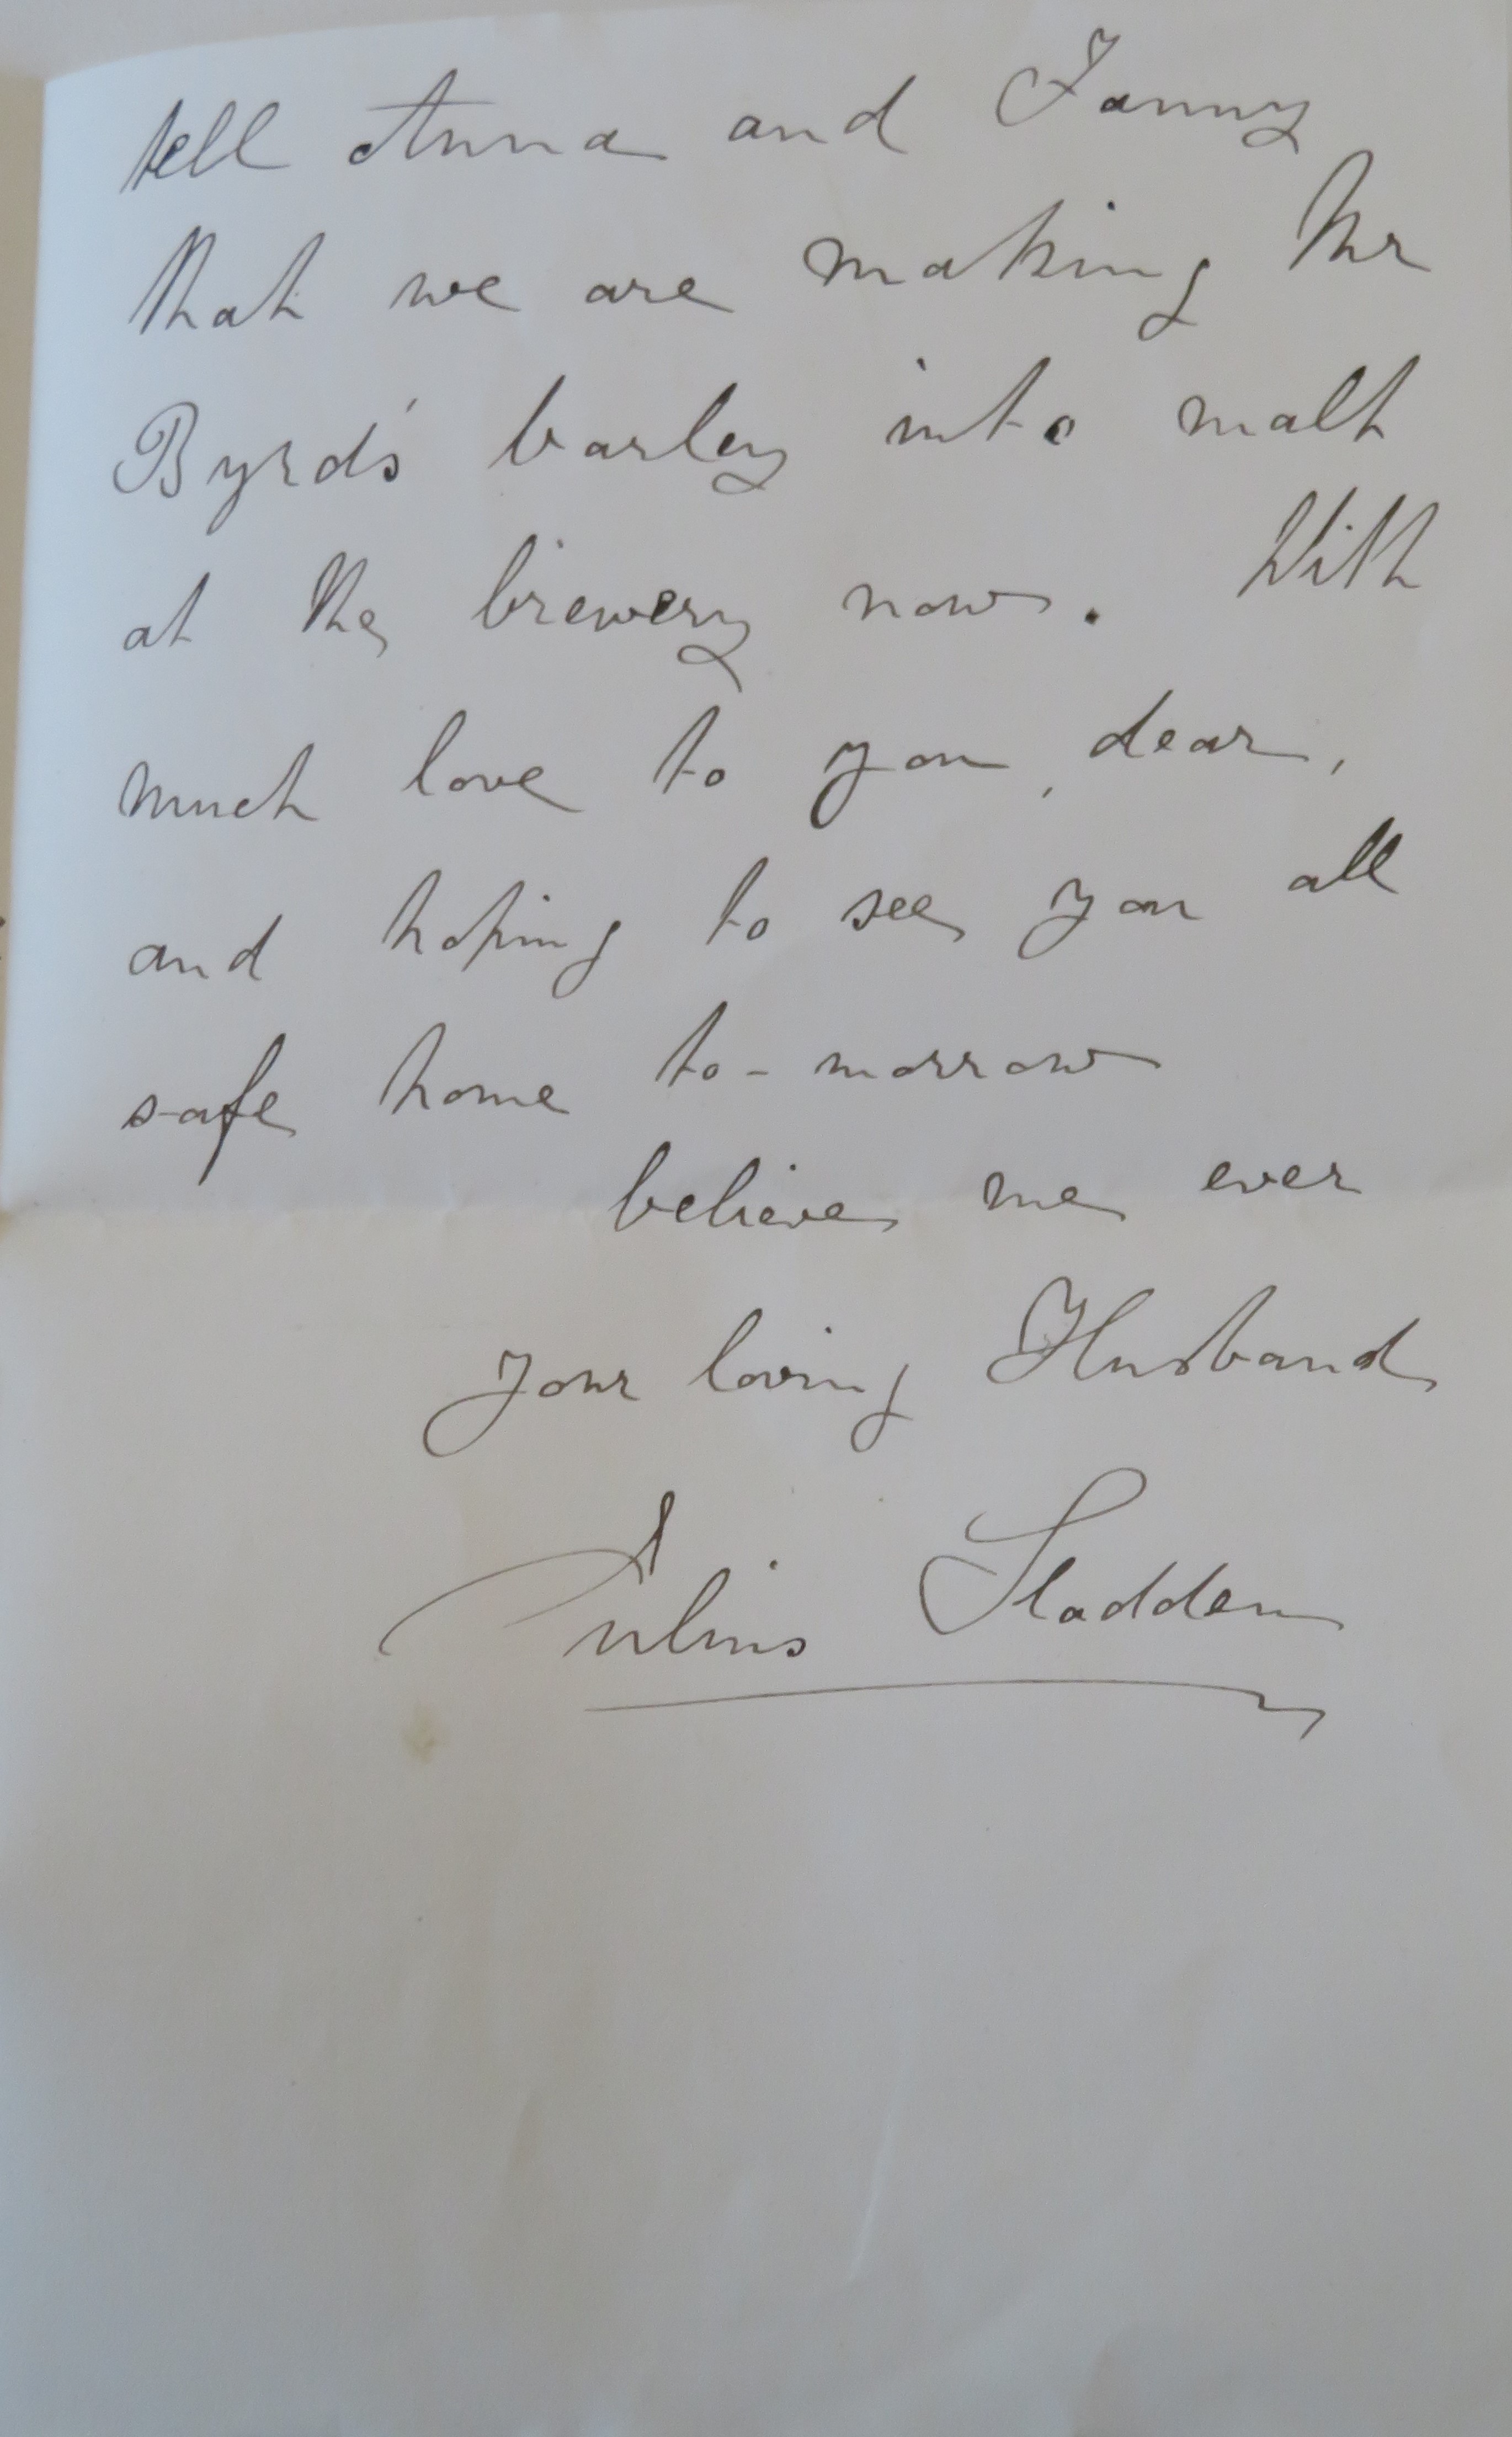 tell Anna and Fanny
that we are making Mr
Byrd's barley into malt
at the brewery now. With
much love to you, dear,
and hoping to see you all
safe home to-morrow
believe me ever
your loving Husband
Julius Sladden